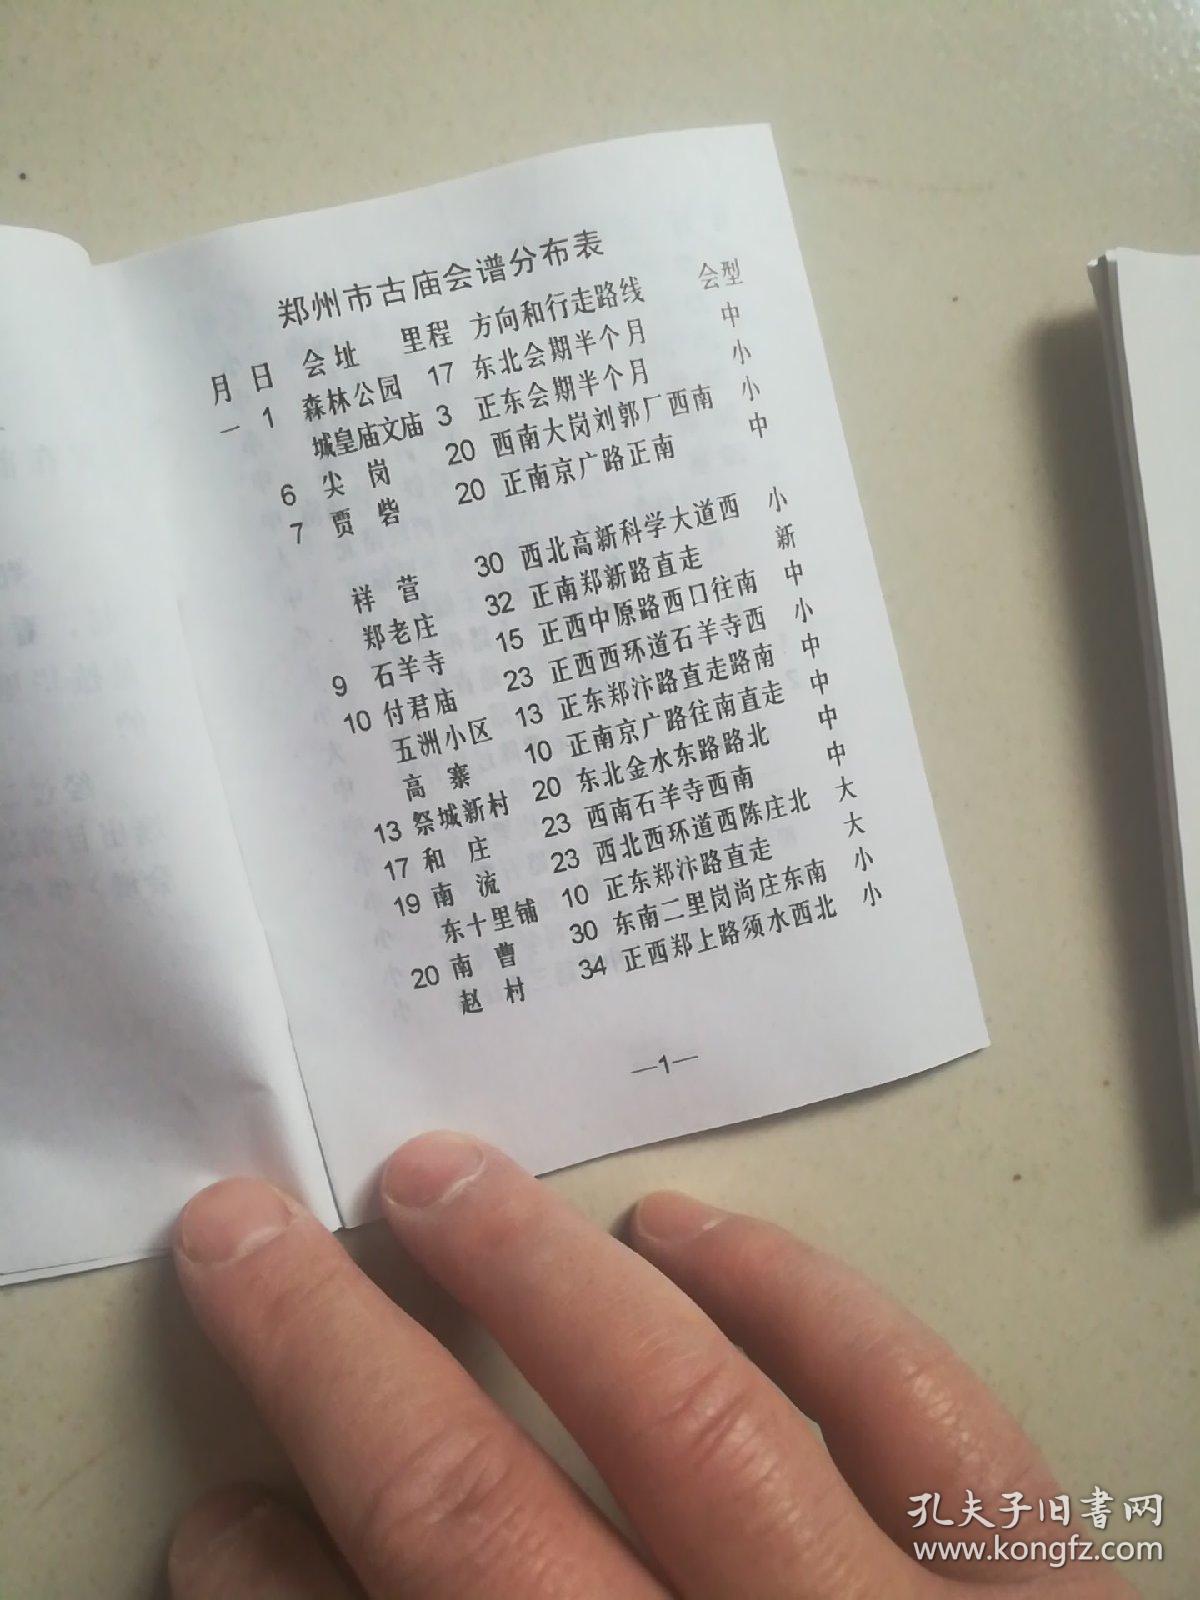 郑州市古庙会谱分布表
月 日 会址 里程 方向和行走路线 会型
一 1 森林公园 17 东北会期半个月 中
城皇庙文庙 3 正东会期半个月 小
6 尖 岗 20 西南大岗刘郭厂西南 小
7 贾 砦 20 正南京广路正南 中
祥 营 30 西北高新科学大道西 小
郑老庄 32 正南郑新路直走 新
9 石羊寺 15 正西中原路西口往南 中
10 付君庙 23 正西西环道石羊寺西 小
五洲小区 13 正东郑汴路直走路南 中
高 寨 10 正南京广路往南直走 中
13 祭城新村 20 东北金水东路路北 中
17 和 庄 23 西南石羊寺西南 中
19 南 流 23 西北西环道西陈庄北 大
东十里铺 10 正东郑汴路直走 大
20 南 曹 30 东南二里岗尚庄东南 小
赵 村 34 正西郑上路须水西北 小
—1—
孔夫子旧书网
www.kongfz.com